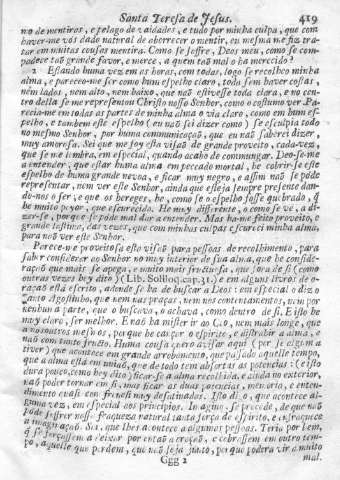 Santa Teresa de Jesus. 419
no de mentiras, e pelago de vaidades, e tudo por minha culpa, que com
haver-me vós dado natural de aborrecer o mentir, eu mesma me fiz tra-
tar em muitas cousas mentira. Como se soffre, Deos meu, como se com-
padece taõ grande favor, e merce, a quem taõ mal o ha merecido?
2 Estando huma vez em as horas, com todas, logo se recolheo minha
alma, e pareceo-me ser como hum espelho claro, toda sem haver costas,
nem lados, nem alto, nem baixo, que naõ estivesse toda clara, e no cen-
tro della se me representou Christo nosso Senhor, como o costumo ver. Pa-
recia-me em todas as partes de minha alma o via claro, como em hum es-
pelho, e tambem este espelho (eu naõ sei dizer como) se esculpia todo
no mesmo Senhor, por huma communicaçaõ, que eu naõ saberei dizer,
muy amorosa. Sei que me foy esta visaõ de grande proveito, cada vez,
que se me lembra, em especial, quando acabo de commungar. Deo-se-me
a entender, que estar huma alma em peccado mortal, he cobrir-se este
espelho de huma grande nevoa, e ficar muy negro, e assim naõ se póde
representar, nem ver este Senhor, ainda que esteja sempre presente dan-
do-nos o ser, e que os hereges, he, como se o espelho fosse quebrado, que
he muito peyor, que escurecido. He muy differente, o como se vê, a di-
zer-se, porque se póde mal dar a entender. Mas ha-me feito proveito, e
grande lastima, das vezes, que com minhas culpas escureci minha alma,
para naõ ver este Senhor.
Parece-me proveitosa esta visaõ para pessoas de recolhimento, para
saber considerar ao Senhor no muy interior de sua alma, que he conside-
raçaõ que mais se apega, e muito mais fructuosa, que fora de si (como
outras vezes hey dito) (Lib. Soliloq. cap. 31.) e em alguns livros de o-
raçaõ está escrito, adonde se ha de buscar a Deos: em especial o diz o
Santo Agostinho, que nem nas praças, nem nos contentamentos, nem por
nenhuma parte, que o buscava, o achava, como dentro de si. E isto he
muy claro, ser melhor. E naõ ha mister ir ao Ceo, nem mais longe, que
a nós outros mesmos, porque he cansar o espirito, e distrahir a alma, e
naõ com tanto fructo. Huma cousa quero avisar aqui (por se alguem a
tiver) que acontece em grande arrobamento, que passado aquelle tempo,
que a alma está em uniaõ, que de todo tem absortas as potencias: (e isto
dura pouco, como hey dito) ficar-se a alma recolhida, e ainda no exterior,
naõ poder tornar em si, mas ficar as duas potencias, memoria, e enten-
dimento quasi com frenesi muy desatinadas. Isto digo, que acontece al-
guma vez, em especial aos principios. Imagino, se procede, de que naõ
póde soffrer nossa fraqueza natural tanta força de espirito, e enfraquece
a imaginaçaõ. Sei, que lhes acontece a algumas pessoas. Teria por bem,
que se forçassem a deixar por entaõ a oraçaõ, e cobrassem em outro tem-
po, aquelle que perdem, que naõ seja junto, porque poderá vir a muito
Ggg 2 mal.